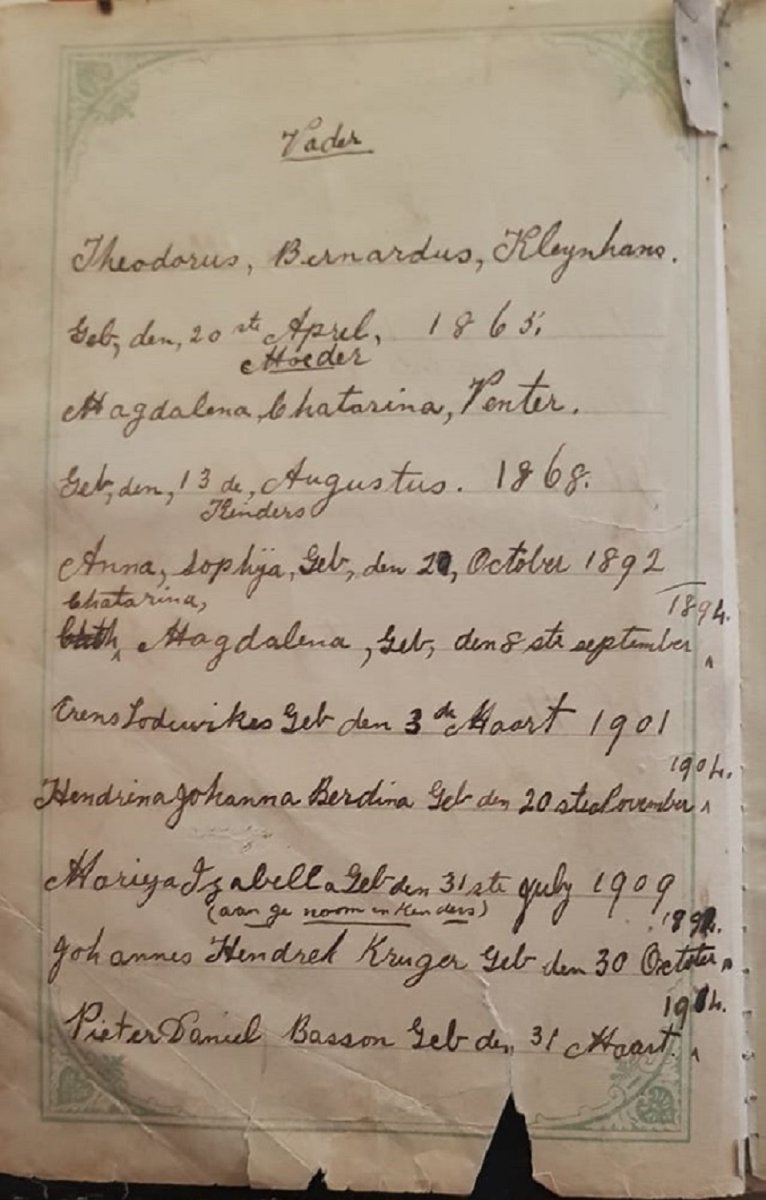 Vader
Theodorus, Bernardus, Kleynhans.
Geb, den, 20 ste April, 1865.
Moeder
Magdalena, Chatarina, Venter.
Geb, den, 13 de, Augustus. 1868.
Kinders
Anna, Sophÿa, Geb, den 20, October 1892
Chatarina,
1894.
Magdalena, Geb, den 8 ste september
Lodewikes Geb den 3 de Maart 1901
1904.
Hendrina Johanna Berdina Geb den 20 ste November
Mariya Izabella Geb den 31 ste July 1909
(aan ge noom en Kenders)
Johannes Hendrek Kruger Geb den 30 October
Pieter Daniel Basson Geb den 31 Maart.